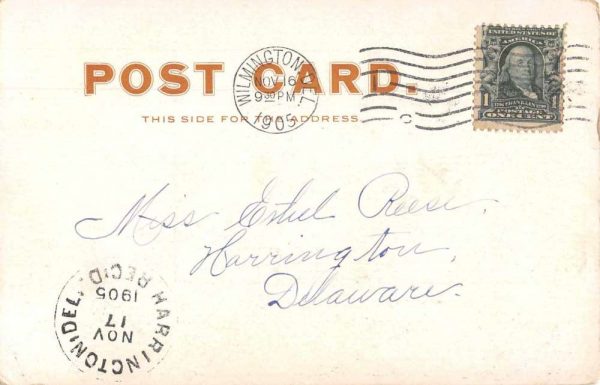 POST CARD.
THIS SIDE FOR THE ADDRESS.
WILMINGTON, DEL.
NOV 16
9 30 PM
1905
C
UNITED STATES OF
AMERICA
1
FRANKLIN
POSTAGE
ONE CENT
1
Miss Ethel Reese,
Harrington,
Delaware.
HARRINGTON, DEL.
NOV
17
1905
REC'D.